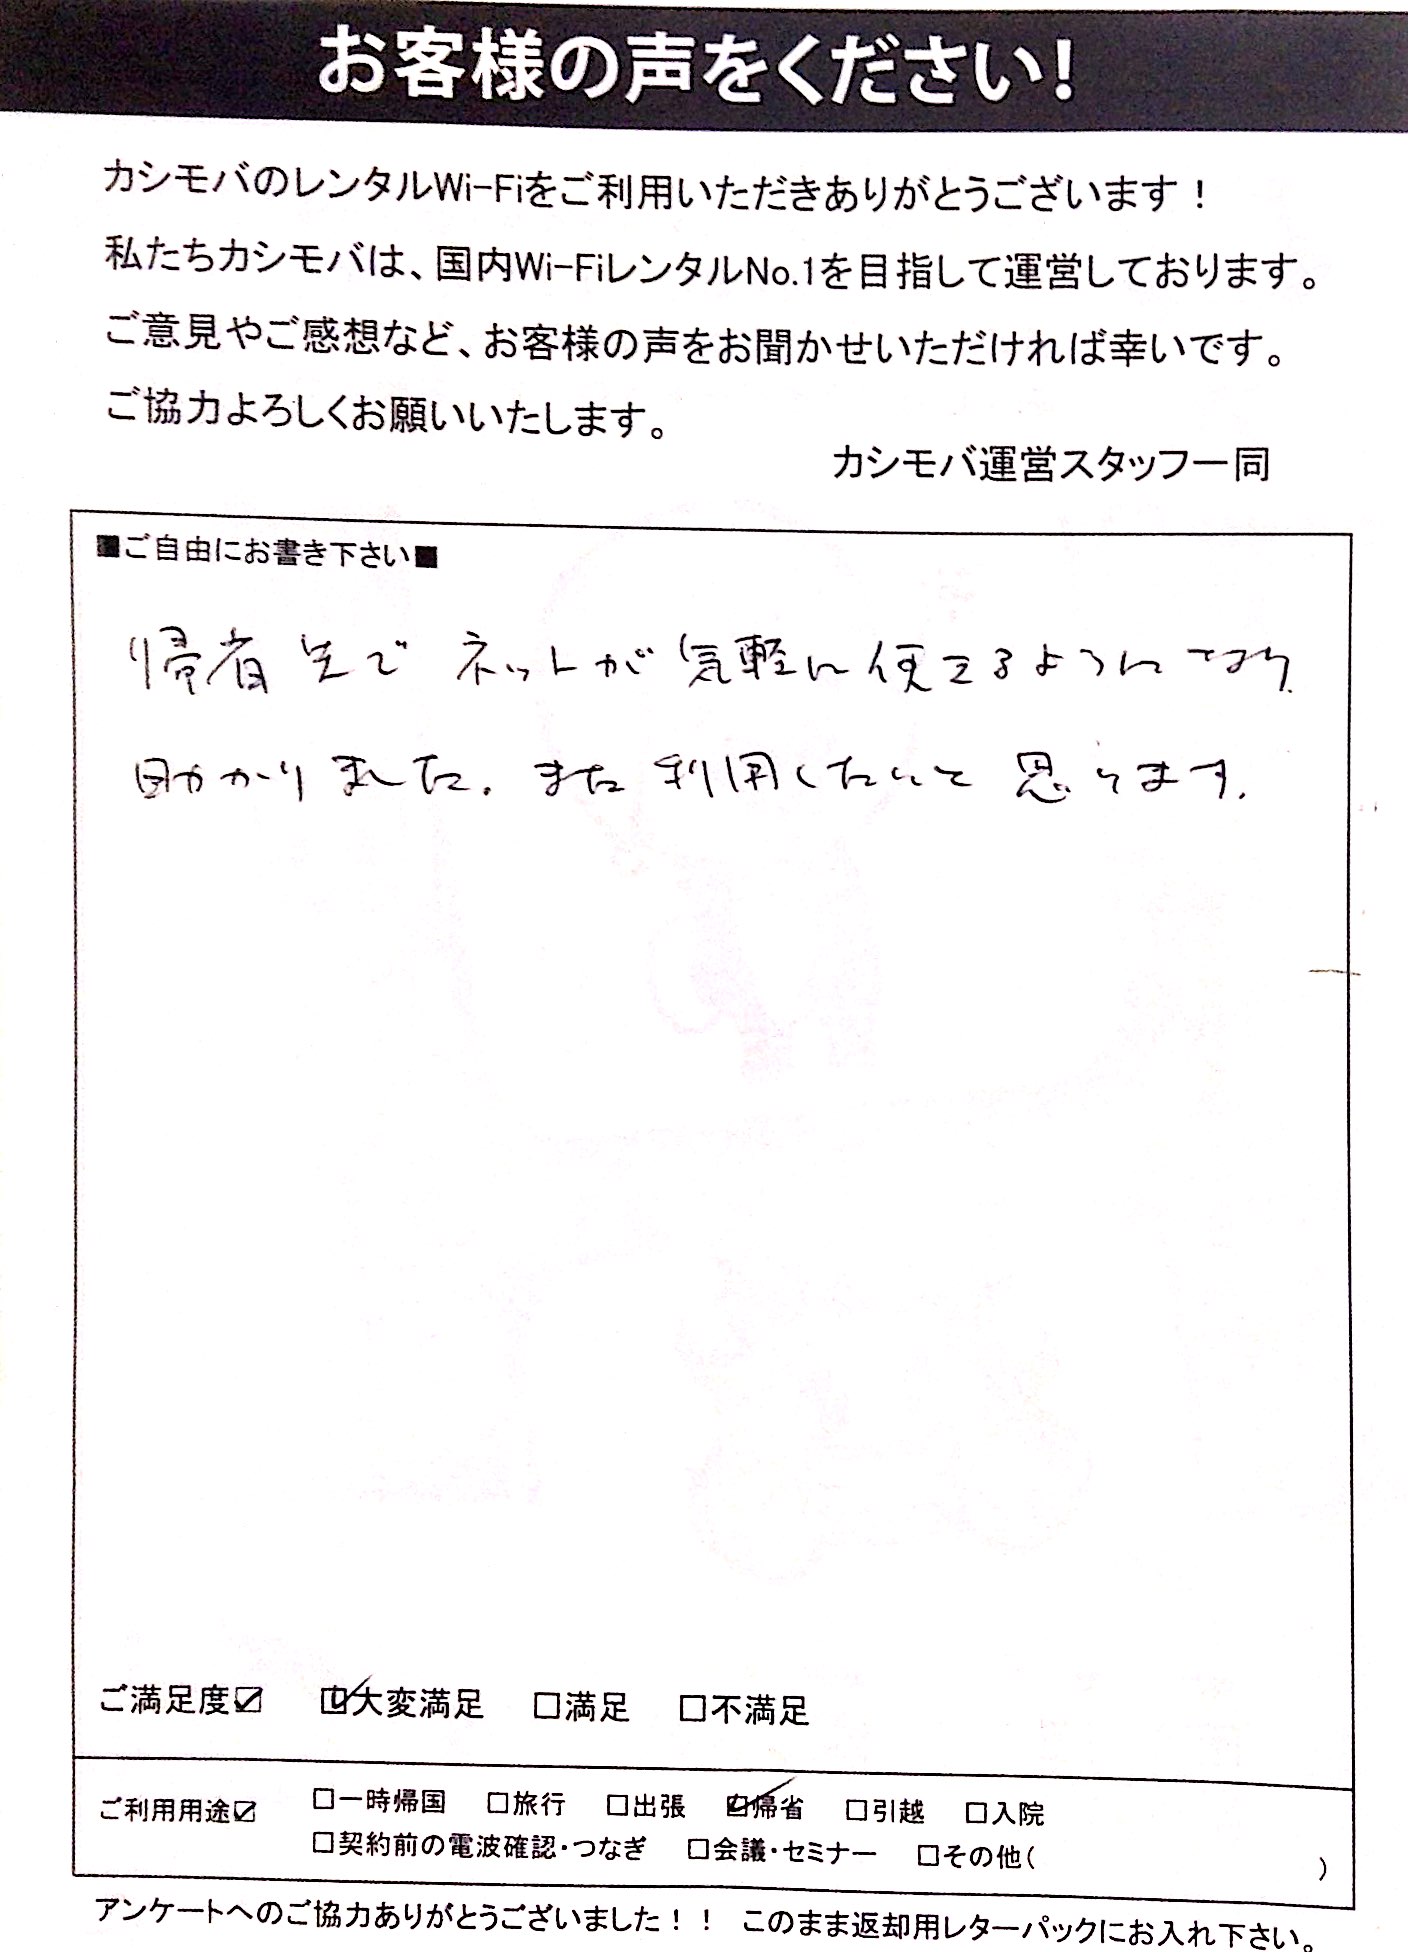 お客様の声をください!
カシモバのレンタルWi-Fiをご利用いただきありがとうございます！
私たちカシモバは、国内Wi-FiレンタルNo.1を目指して運営しております。
ご意見やご感想など、お客様の声をお聞かせいただければ幸いです。
ご協力よろしくお願いいたします。
カシモバ運営スタッフ一同
■ご自由にお書き下さい■
帰省先でネットが気軽に使えるようになり、
助かりました。また利用したいと思います。
ご満足度☑ ☑大変満足 □満足 □不満足
ご利用用途☑ □一時帰国 □旅行 □出張 ☑帰省 □引越 □入院
□契約前の電波確認・つなぎ □会議・セミナー □その他( )
アンケートへのご協力ありがとうございました！！ このまま返却用レターパックにお入れ下さい。